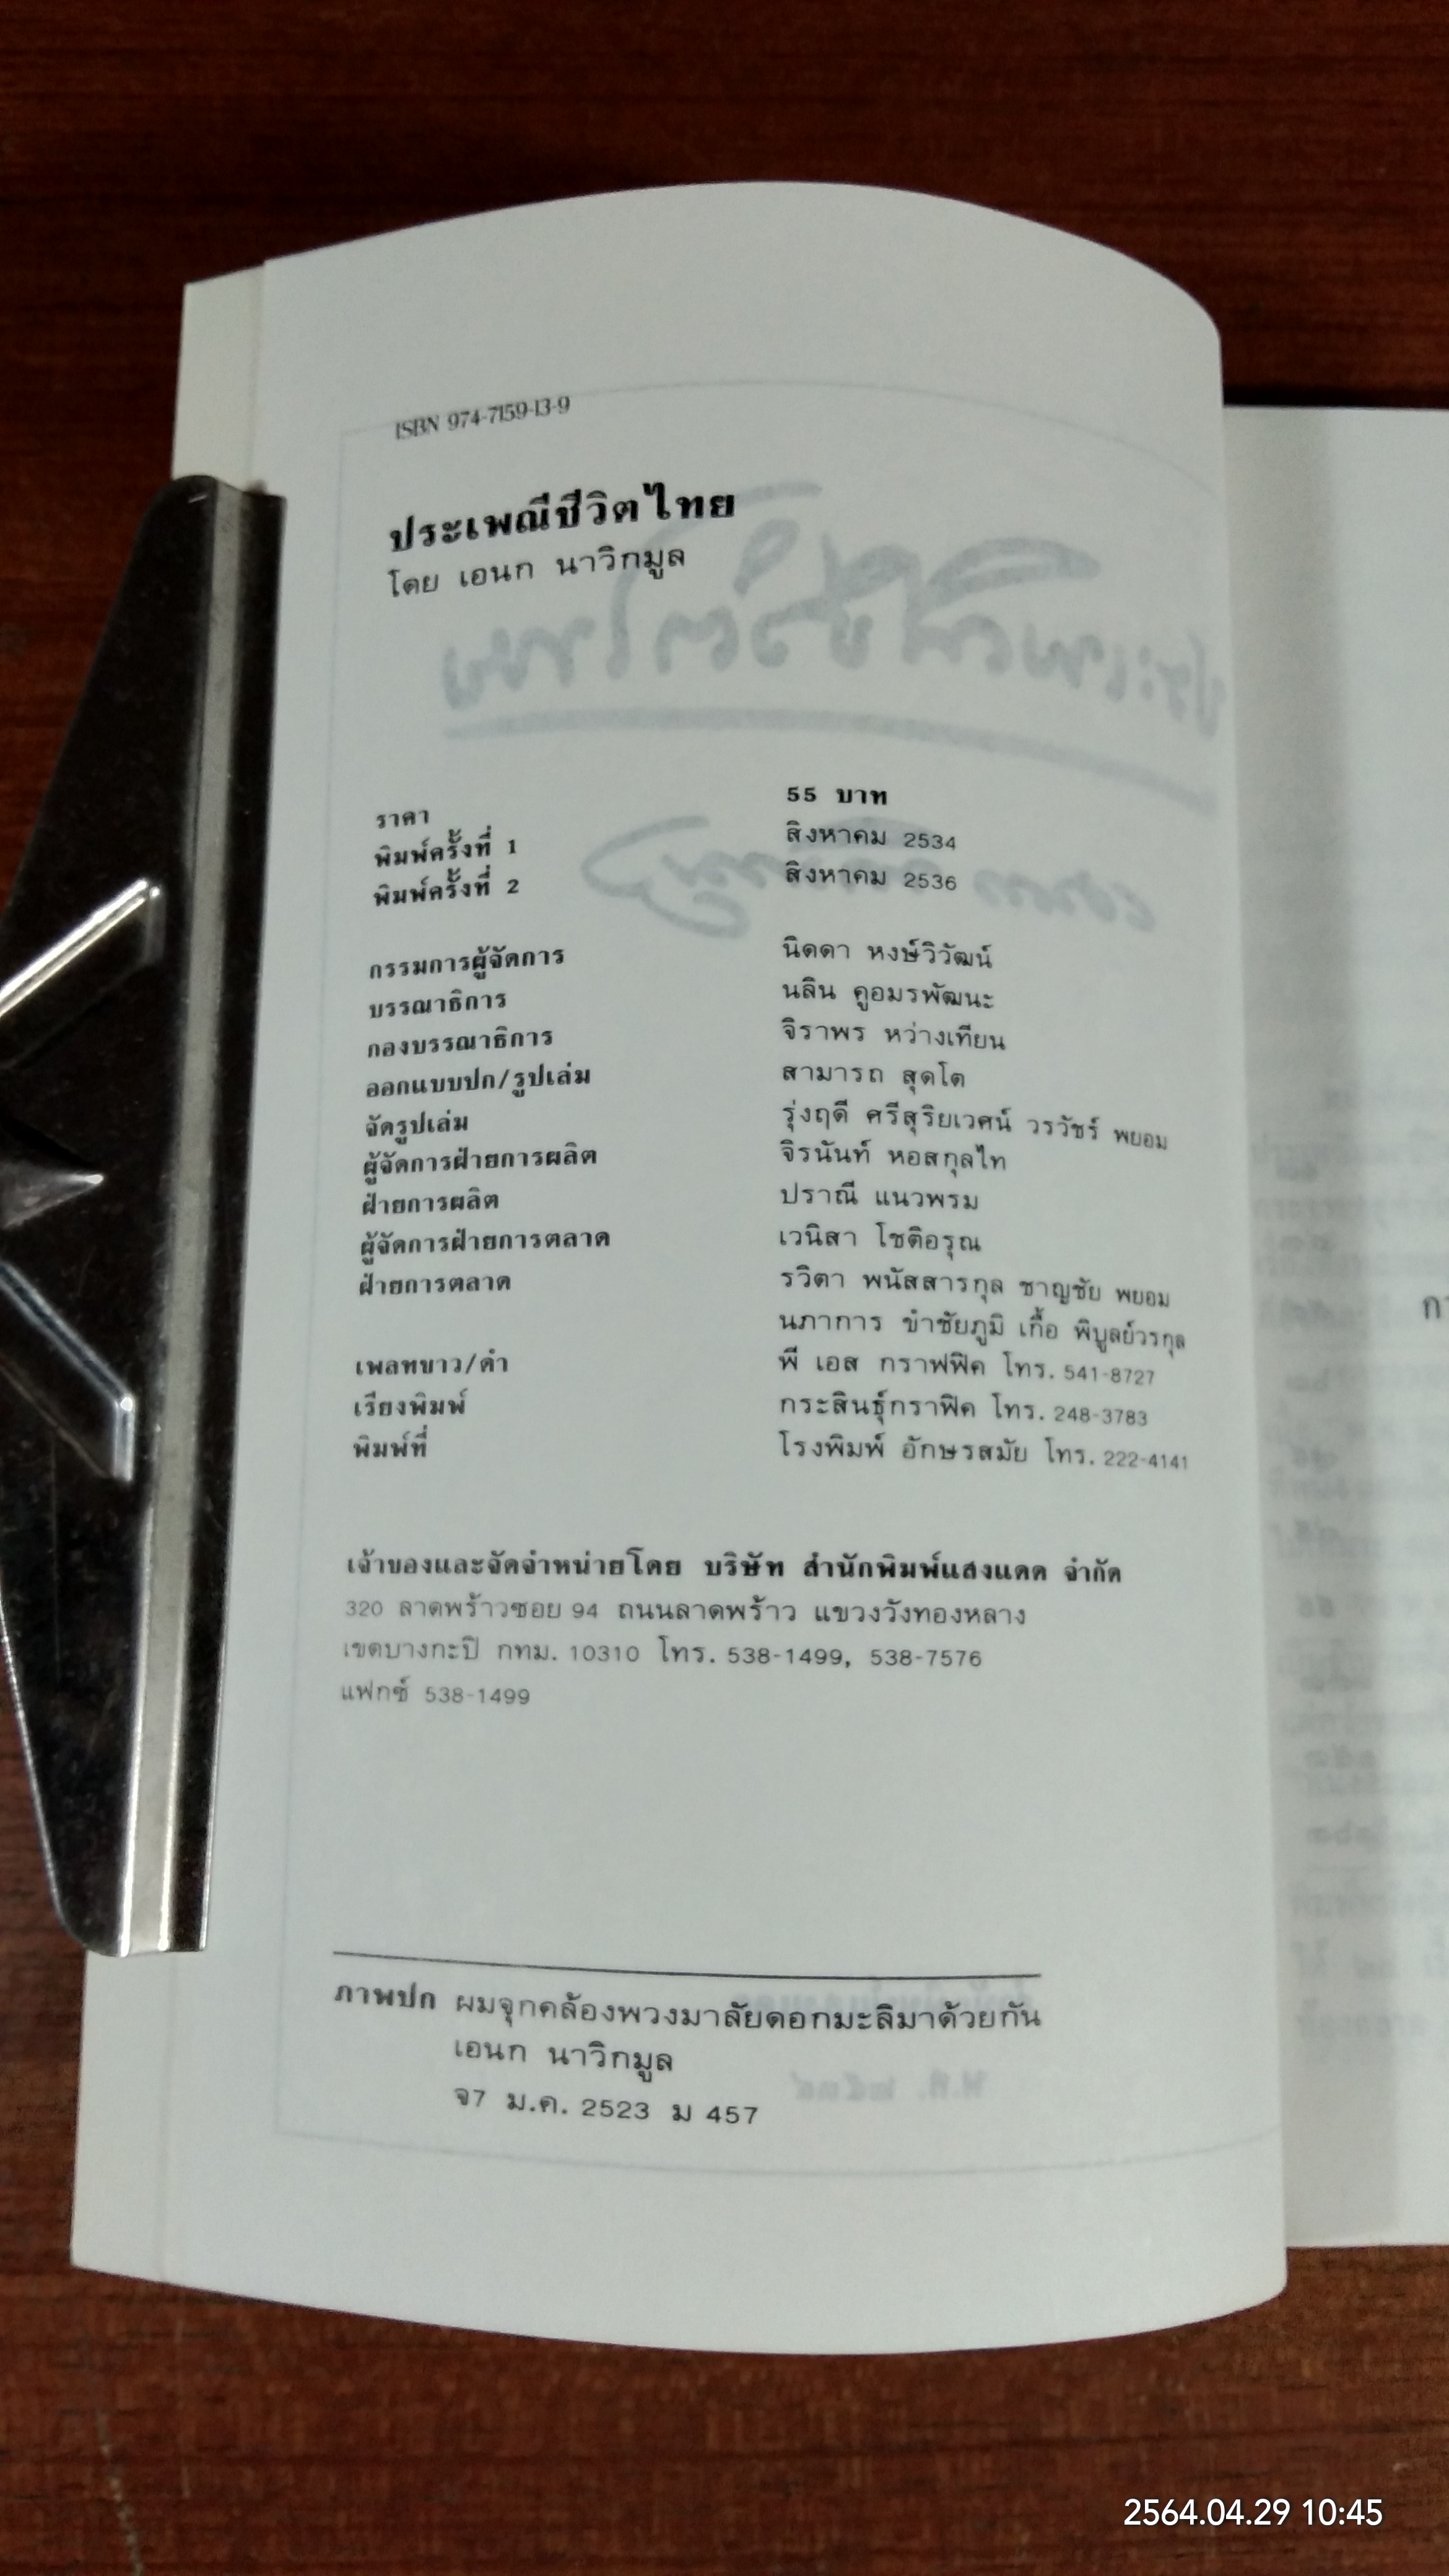 ISBN 974-7159-13-9
ประเพณีชีวิตไทย
โดย เอนก นาวิกมูล
ราคา 55 บาท
พิมพ์ครั้งที่ 1 สิงหาคม 2534
พิมพ์ครั้งที่ 2 สิงหาคม 2536
กรรมการผู้จัดการ นิดดา หงษ์วิวัฒน์
บรรณาธิการ นลิน คูอมรพัฒนะ
กองบรรณาธิการ จิราพร หว่างเทียน
ออกแบบปก/รูปเล่ม สามารถ สุดโต
จัดรูปเล่ม รุ่งฤดี ศรีสุริยเวศน์ วรวัชร์ พยอม
ผู้จัดการฝ่ายการผลิต จิรนันท์ หอสกุลไท
ฝ่ายการผลิต ปราณี แนวพรม
ผู้จัดการฝ่ายการตลาด เวนิสา โชติอรุณ
ฝ่ายการตลาด รวิตา พนัสสารกุล ชาญชัย พยอม
นภาการ ขำชัยภูมิ เกื้อ พิบูลย์วรกุล
เพลทขาว/ดำ พี เอส กราฟฟิค โทร. 541-8727
เรียงพิมพ์ กระสินธุ์กราฟิค โทร. 248-3783
พิมพ์ที่ โรงพิมพ์ อักษรสมัย โทร. 222-4141
เจ้าของและจัดจำหน่ายโดย บริษัท สำนักพิมพ์แสงแดด จำกัด
320 ลาดพร้าวซอย 94 ถนนลาดพร้าว แขวงวังทองหลาง
เขตบางกะปิ กทม. 10310 โทร. 538-1499, 538-7576
แฟกซ์ 538-1499
ภาพปก ผมจุกคล้องพวงมาลัยดอกมะลิมาด้วยกัน
เอนก นาวิกมูล
จ7 ม.ค. 2523 ม 457
2564.04.29 10:45